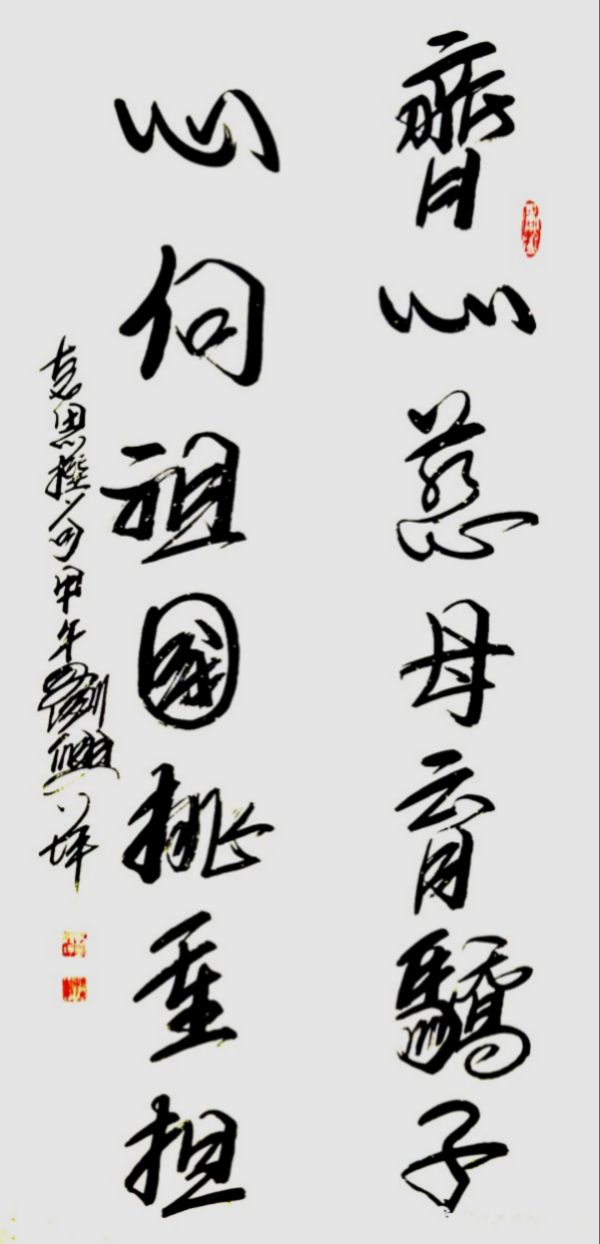 齊心慈母育驕子
心向祖國挑重担
撰句甲午劉興